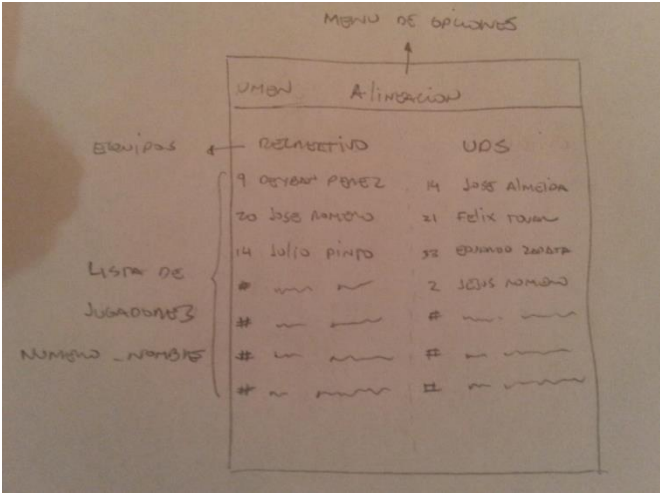 MENU DE OPCIONES
Alineacion
EQUIPOS RECREATIVO UDS
9 PEREZ 14 JOSE AlmEIDA
20 JOSE ROMERO 21 FELIX
14 Julio PINTO ZAPATA
# 2 JESUS ROMERO
LISTA DE
JUGADORES # #
NUMERO - NOMBRE # #
# #